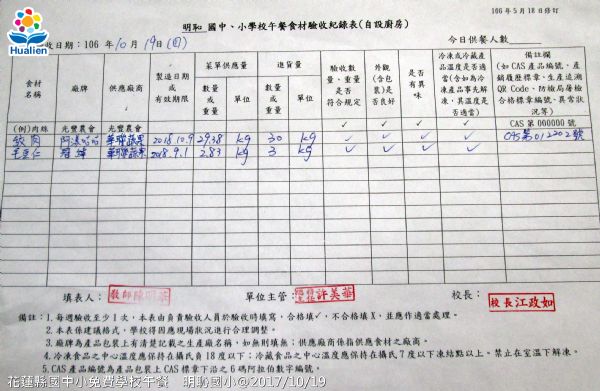 106年5月18日修訂
Hualien
明恥 國中、小學校午餐食材驗收紀錄表(自設廚房)
收日期：106年10月19日(四)
今日供餐人數
食材名稱 廠牌 供應廠商 製造日期或有效期限 菜單供應量 進貨量 驗收數量、重量是否符合規定 外觀(含包裝)是否良好 是否有異味 冷凍或冷藏產品溫度是否適當(含如為冷凍產品事先解凍，其溫度是否適當) 備註欄(如CAS產品編號、產銷履歷標章、生產追溯QR Code、防檢局屠檢合格標章編號、異常狀況等)
數量或重量 單位 數量或重量 單位
(例)肉絲 光豐農會 光豐農會 ✓ ✓ ✓ ✓ CAS 第000000號
絞肉 華聯蔬果 2018.10.9 29.38 kg 30 kg ✓ ✓ ✓ ✓ CAS第012202號
毛豆仁 華聯蔬果 2018.9.1 2.83 kg 3 kg ✓ ✓ ✓ ✓
填表人： 單位主管： 許美華 校長： 校長江政如
備註：1.每週驗收至少1次，本表由負責驗收人員於驗收時填寫，合格填✓，不合格填X，並應作適當處理。
2.本表係建議格式，學校得因應現場狀況進行合理調整。
3.廠牌為產品包裝上有清楚記載之生產廠名稱，如無則填無；供應廠商係指供應食材之廠商。
4.冷凍食品之中心溫度應保持在攝氏負18度以下；冷藏食品之中心溫度應保持在攝氏7度以下凍結點以上。禁止在室溫下解凍。
5.CAS產品編號為產品包裝上CAS標章下沿之6碼阿拉伯數字編號。
花蓮縣國中小免費學校午餐 明恥國小@2017/10/19